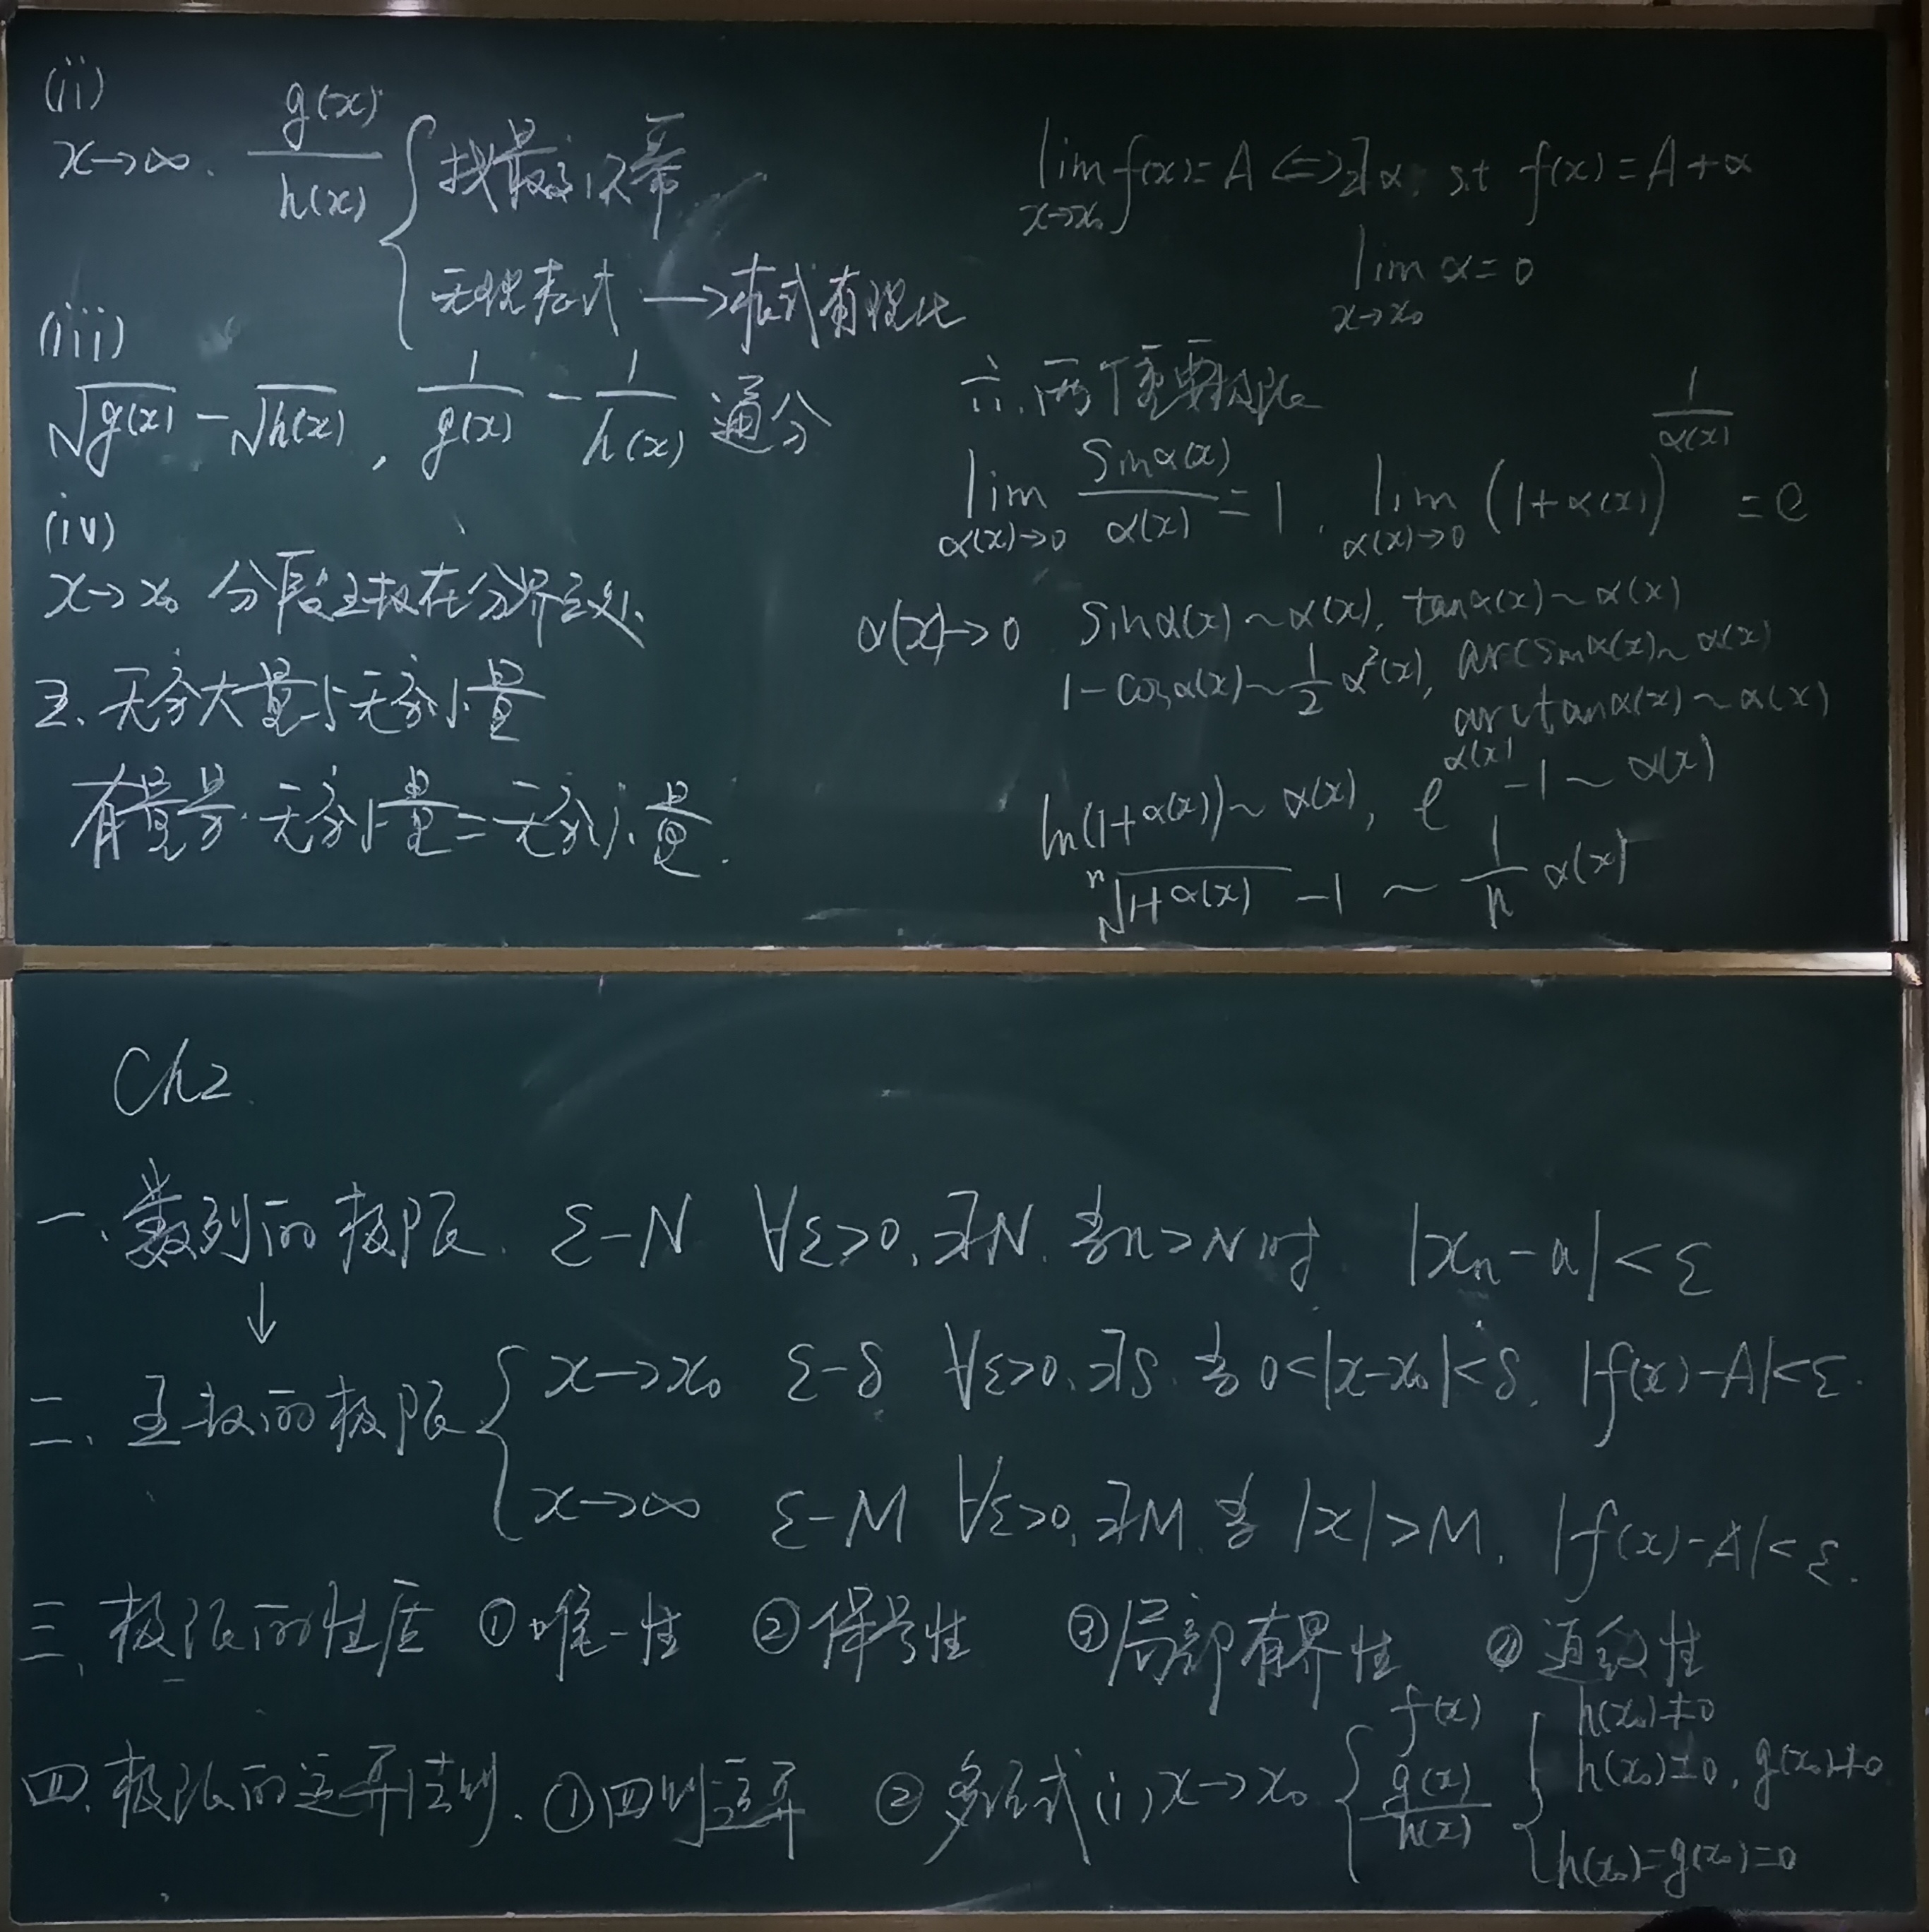 (ii)
x→∞. g(x)/h(x) { 找最高次幂
无理式 → 根式有理化
(iii)
√g(x) − √h(x), 1/g(x) − 1/h(x) 通分
(iv)
x→x₀ 分段函数在分界点处
五. 无穷大量与无穷小量
有界量·无穷小量=无穷小量.
lim_{x→x₀} f(x)=A <=> ∃α, s.t f(x)=A+α
lim_{x→x₀} α=0
六. 两个重要极限
lim_{α(x)→0} sinα(x)/α(x) = 1. lim_{α(x)→0} (1+α(x))^{1/α(x)} = e
α(x)→0 sinα(x)~α(x), tanα(x)~α(x)
1−cosα(x)~1/2 α²(x), arcsinα(x)~α(x)
arctanα(x)~α(x)
ln(1+α(x))~α(x), e^{α(x)}−1~α(x)
ⁿ√(1+α(x)) −1 ~ 1/n α(x)
Ch2.
一. 数列的极限. ε−N ∀ε>0, ∃N. 当n>N时 |xₙ−a|<ε
↓
二. 函数的极限 { x→x₀ ε−δ ∀ε>0, ∃δ. 当0<|x−x₀|<δ, |f(x)−A|<ε.
x→∞ ε−M ∀ε>0, ∃M. 当|x|>M, |f(x)−A|<ε.
三. 极限的性质 ①唯一性 ②保号性 ③局部有界性 ④迫敛性
四. 极限的运算法则. ①四则运算 ②多项式 (i) x→x₀ { f(x)
g(x)/h(x) { h(x₀)≠0
h(x₀)=0, g(x₀)≠0
h(x₀)=g(x₀)=0